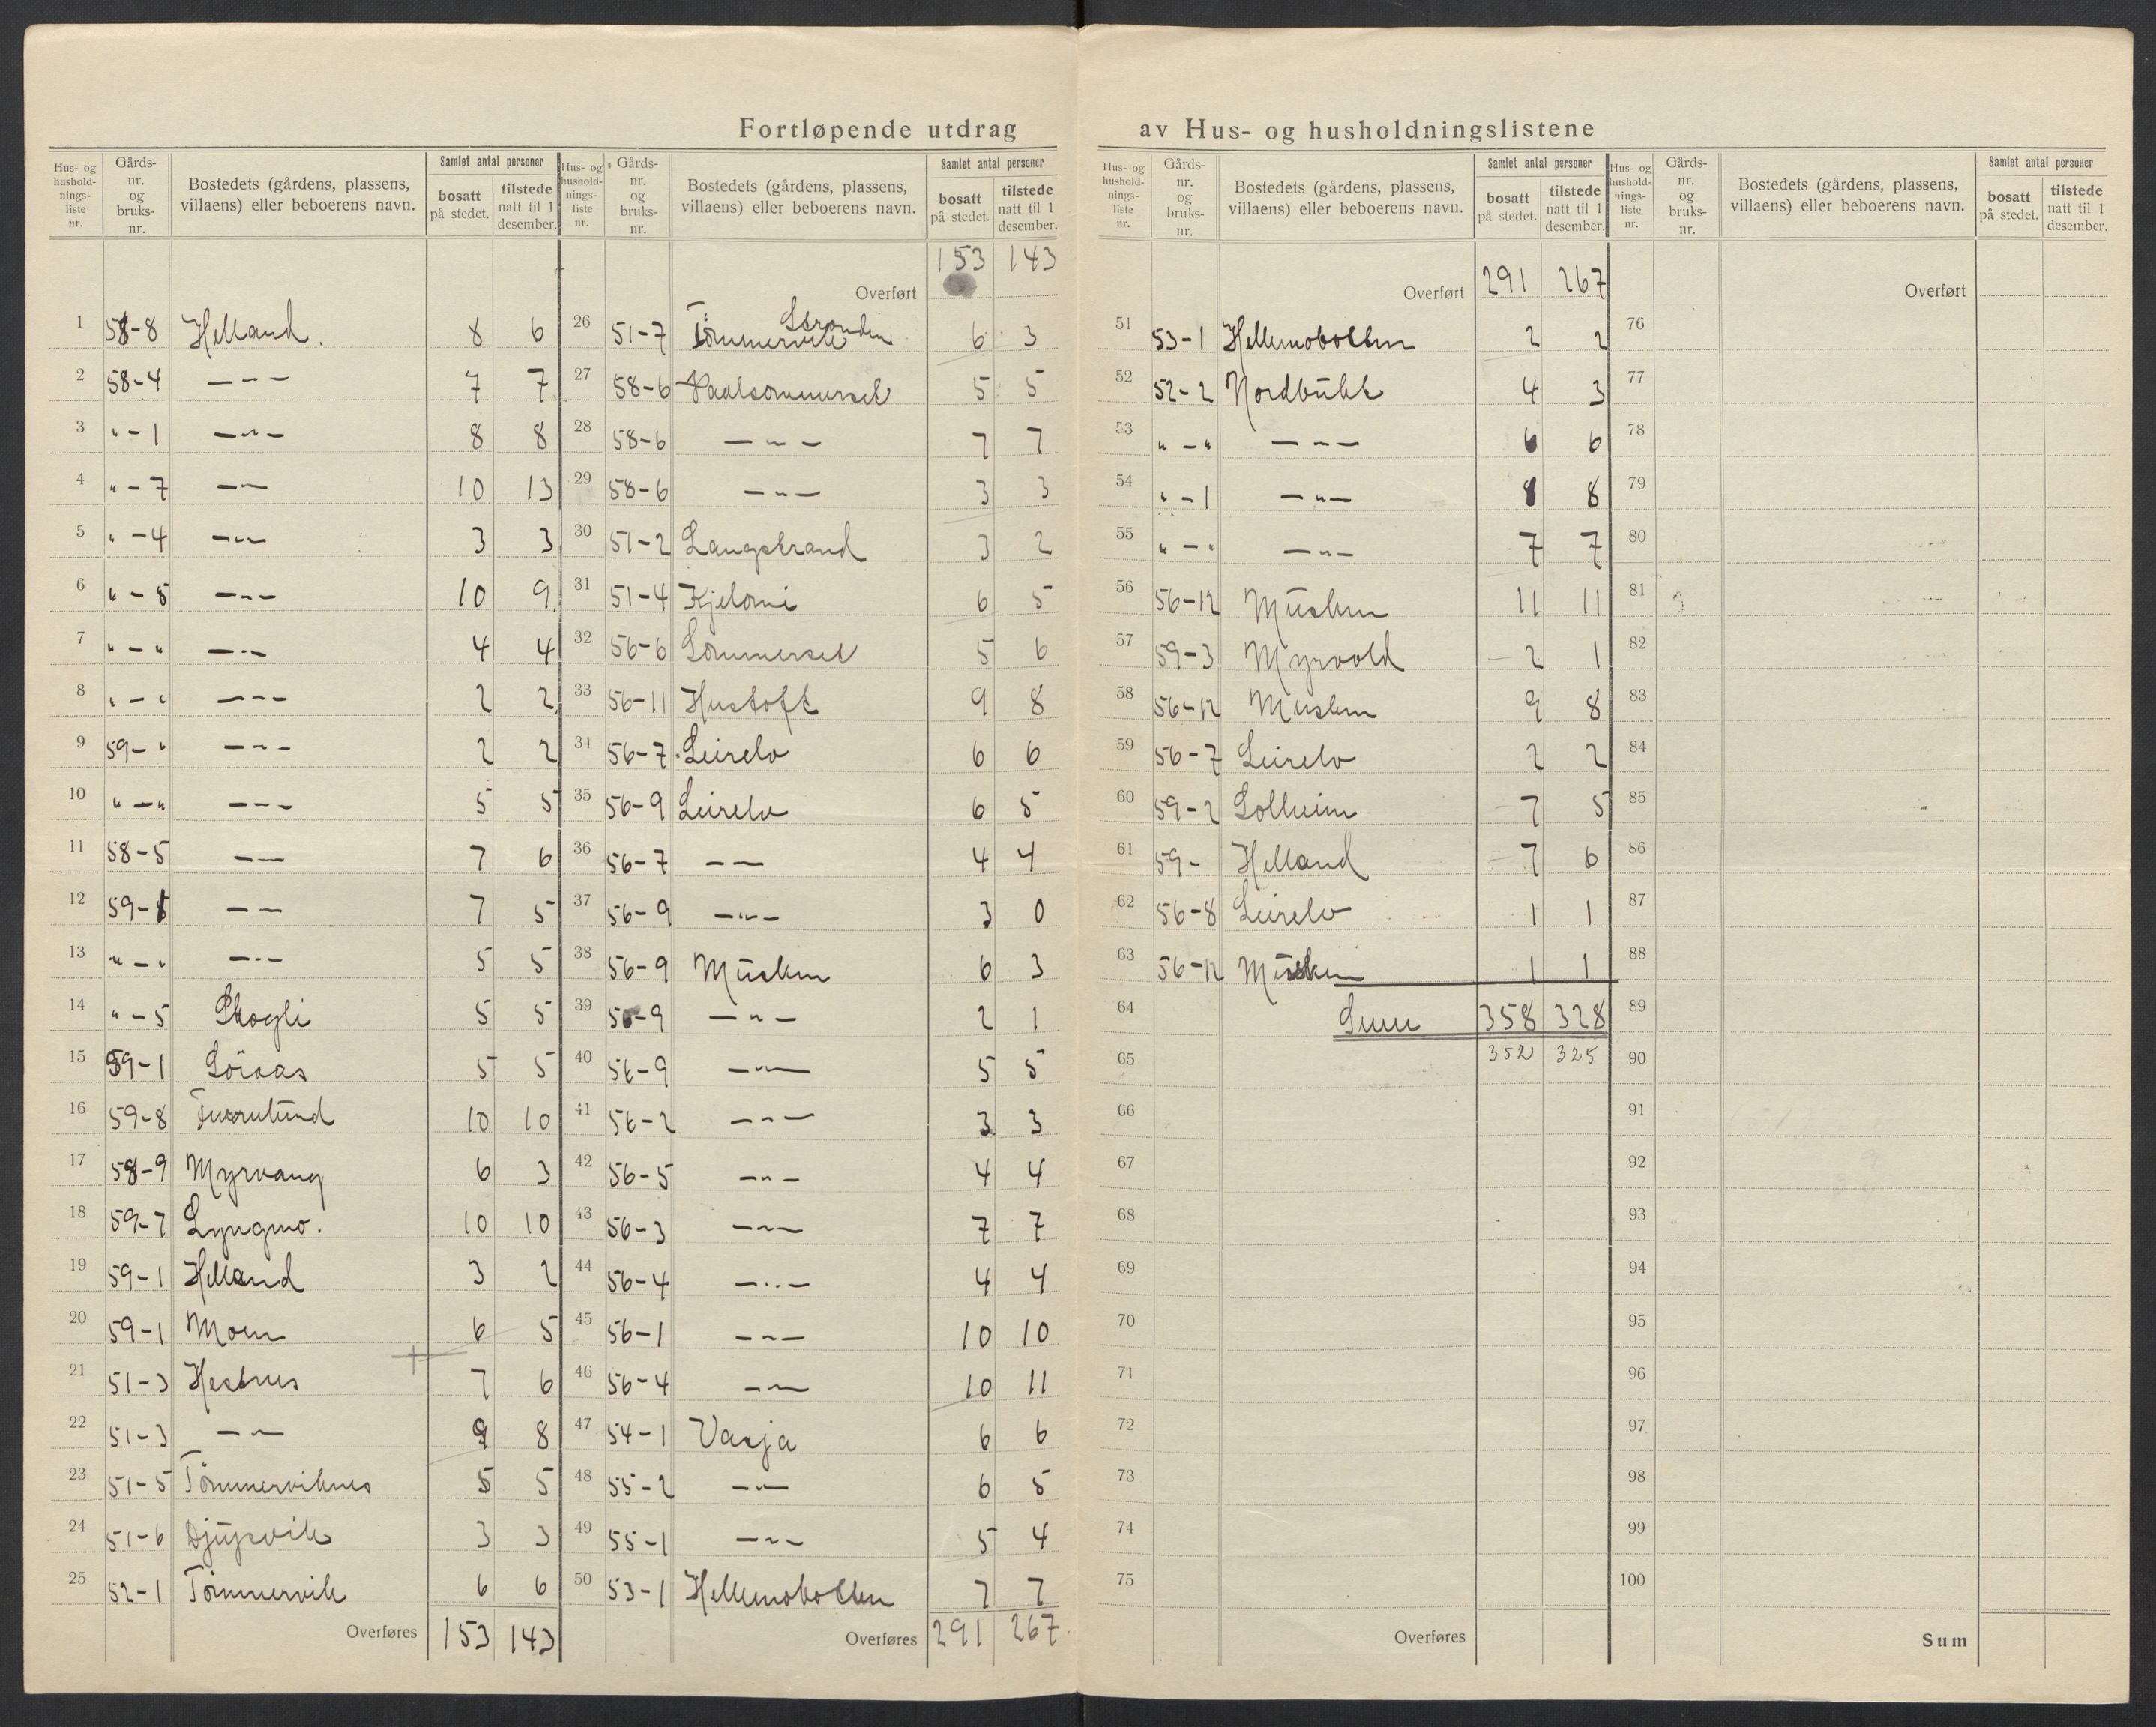 Fortløpende utdrag av Hus- og husholdningslistene
Hus- og husholdnings-liste nr. | Gårds-nr. og bruks-nr. | Bostedets (gårdens, plassens, villaens) eller beboerens navn. | Samlet antal personer | bosatt på stedet. | tilstede natt til 1 desember.
1 58-8 Helland. 8 6
2 58-4 — " — 7 7
3 " - 1 — " — 8 8
4 " - 7 — " — 10 13
5 " - 4 — " — 3 3
6 " - 8 — " — 10 9
7 " - " — " — 4 4
8 " - " — " — 2 2
9 59- " — " — 2 2
10 " - " — " — 5 5
11 58-5 — " — 7 6
12 59-1 — " — 7 5
13 " - " — " — 5 5
14 " - 5 Skogli 5 5
15 59-1 Soraas 5 5
16 59-8 Furulund 10 10
17 58-9 Myrvang 6 3
18 59-7 Lyngmo. 10 10
19 59-1 Helland 3 2
20 59-1 Moen 6 5
21 51-3 Hestnes 7 6
22 51-3 — " — 9 8
23 51-5 Tömmerviknes 5 5
24 51-6 Djupvik 3 3
25 52-1 Tömmervik 6 6
Overføres 153 143
Hus- og husholdnings-liste nr. | Gårds-nr. og bruks-nr. | Bostedets (gårdens, plassens, villaens) eller beboerens navn. | Samlet antal personer | bosatt på stedet. | tilstede natt til 1 desember.
Overført 153 143
26 51-7 Tömmervik Stranden 6 3
27 58-6 5 5
28 58-6 — " — 7 7
29 58-6 — " — 3 3
30 51-2 Langstrand 3 2
31 51-4 6 5
32 56-6 Sommersel 5 6
33 56-11 Hustoft 9 8
34 56-7 Leirelv 6 6
35 56-9 Leirelv 6 5
36 56-7 — — 4 4
37 56-9 — " — 3 0
38 56-9 Musken 6 3
39 56-9 — " — 2 1
40 56-9 — " — 5 5
41 56-2 — " — 3 3
42 56-5 — " — 4 4
43 56-3 — " — 7 7
44 56-4 — " — 4 4
45 56-1 — " — 10 10
46 56-4 — " — 10 11
47 54-1 Vasja 6 6
48 55-2 — " — 6 5
49 55-1 — " — 5 4
50 53-1 Hellemobotten 7 7
Overføres 291 267
Hus- og husholdnings-liste nr. | Gårds-nr. og bruks-nr. | Bostedets (gårdens, plassens, villaens) eller beboerens navn. | Samlet antal personer | bosatt på stedet. | tilstede natt til 1 desember.
Overført 291 267
51 53-1 Hellemobotten 2 2
52 52-2 Nordbukt 4 3
53 " - " — " — 6 6
54 " - 1 — " — 8 8
55 " - " — " — 7 7
56 56-12 Musken 11 11
57 59-3 Myrvold 2 1
58 56-12 Musken 9 8
59 56-7 Leirelv 2 2
60 59-2 Solheim 7 5
61 59- Helland 7 6
62 56-8 Leirelv 1 1
63 56-12 Musken 1 1
64 Sum 358 328
65 352 325
66
67
68
69
70
71
72
73
74
75
Overføres
Hus- og husholdnings-liste nr. | Gårds-nr. og bruks-nr. | Bostedets (gårdens, plassens, villaens) eller beboerens navn. | Samlet antal personer | bosatt på stedet. | tilstede natt til 1 desember.
Overført
76
77
78
79
80
81
82
83
84
85
86
87
88
89
90
91
92
93
94
95
96
97
98
99
100
Sum